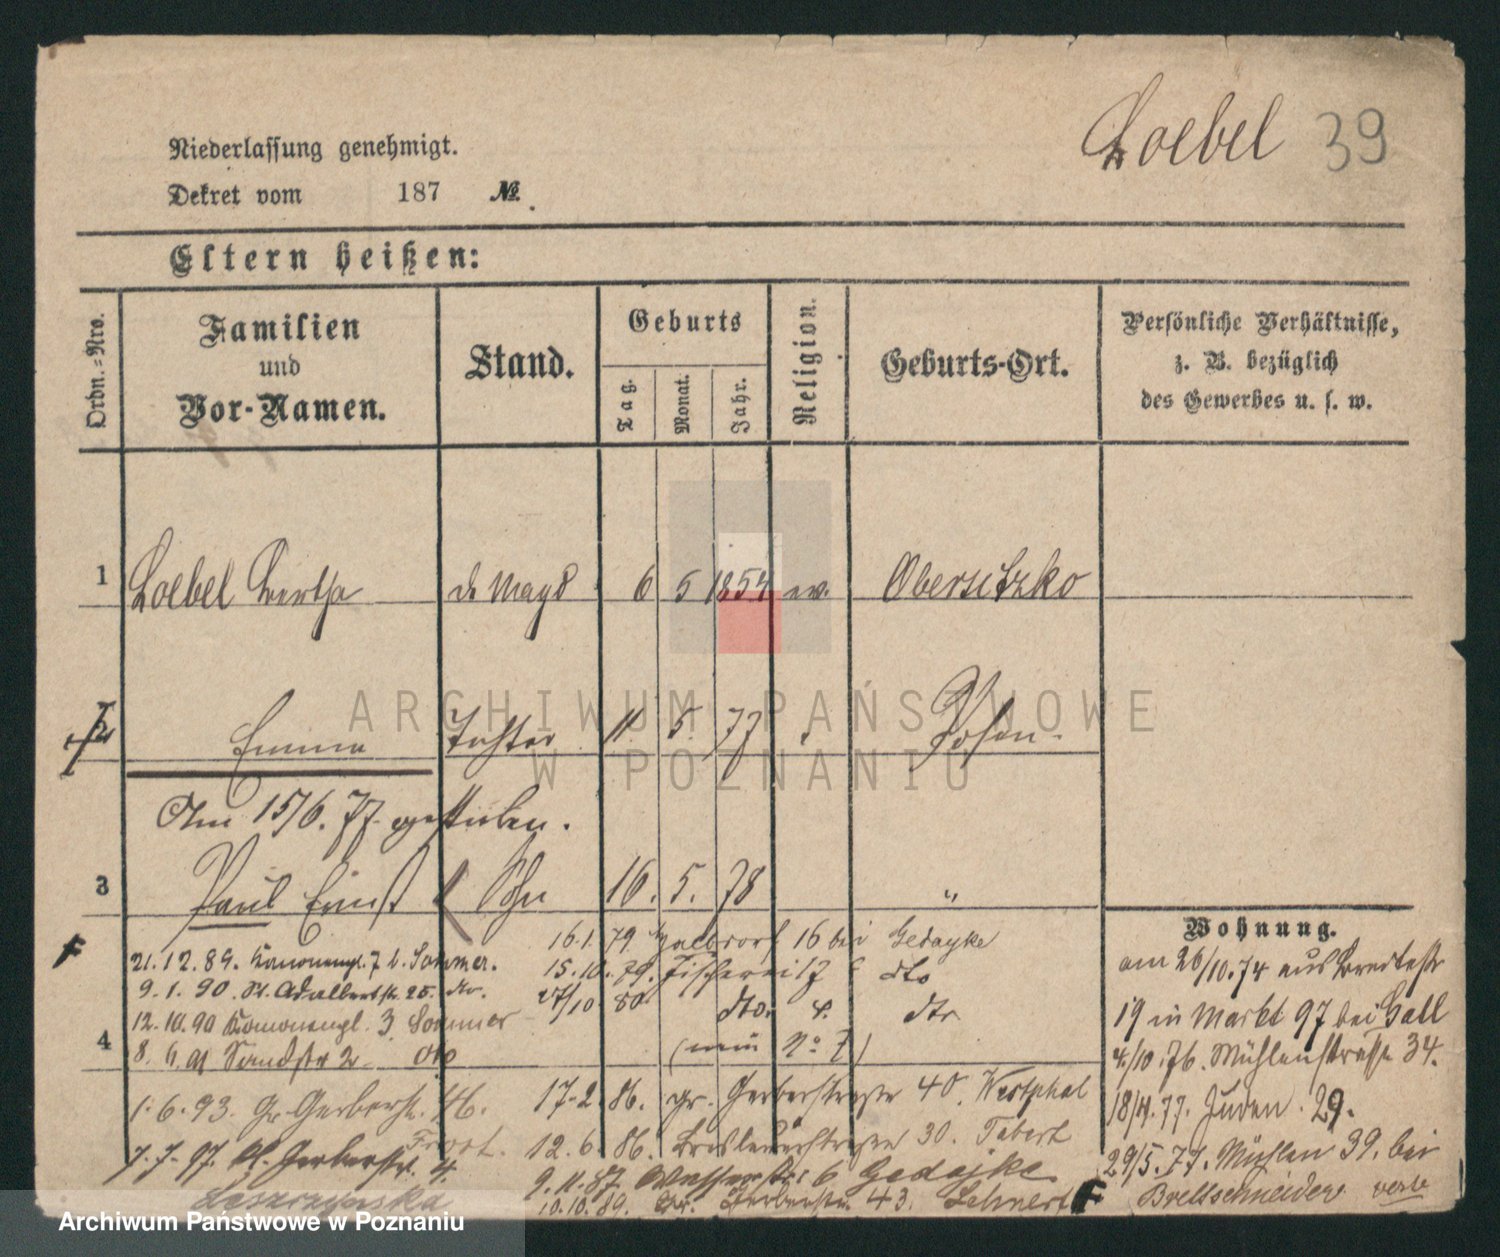 Loebel 39
Niederlassung genehmigt.
Dekret vom 187 №.
Eltern heißen:
Ordn.-Nro.
Familien
und
Vor-Namen.
Stand.
Geburts
Tag.
Monat.
Jahr.
Religion.
Geburts-Ort.
Persönliche Verhältnisse,
z. B. bezüglich
des Gewerbes u. s. w.
1 Loebel Bertha d. Magd 6 5 1854 ev. Obersitzko
2 Emma Tochter 11. 5. 77 Posen.
Am 15/6. 77 gestorben.
3 Paul Ernst Sohn 16. 5. 78 "
Wohnung.
am 26/10. 74 aus Breitestr
19 in Markt 97 bei Gall
4/10. 76. Mühlenstrasse 34.
18/4. 77. Juden. 29.
29/5. 77. Mühlen 39. bei
Brettschneider
16.1. 79 16 bei Gedajke
15.10. 79. Fischerei 17 dto
27/10 80 dto. 4. dto
(neu No 7)
17.2. 86. gr. Gerberstrasse 40. Westphal
12.6. 86. Breslauerstrasse 30. Tabert
9.11. 87. Wasserstr. 6 Gedajke
10.10.89. Gr. Gerberstr. 43. Lehnert
21.12.89. Kanonenpl. 7 b. Sommer.
9.1.90. St. Adalbertstr. 25. dto.
4
12.10.90 Kanonenpl. 3 Sommer
8.6.91 Sandstr 2
1.6.93. Gr. Gerberst. 46.
7.7.97. Kl. Gerberstr. 4.
ARCHIWUM PAŃSTWOWE
W POZNANIU
Archiwum Państwowe w Poznaniu